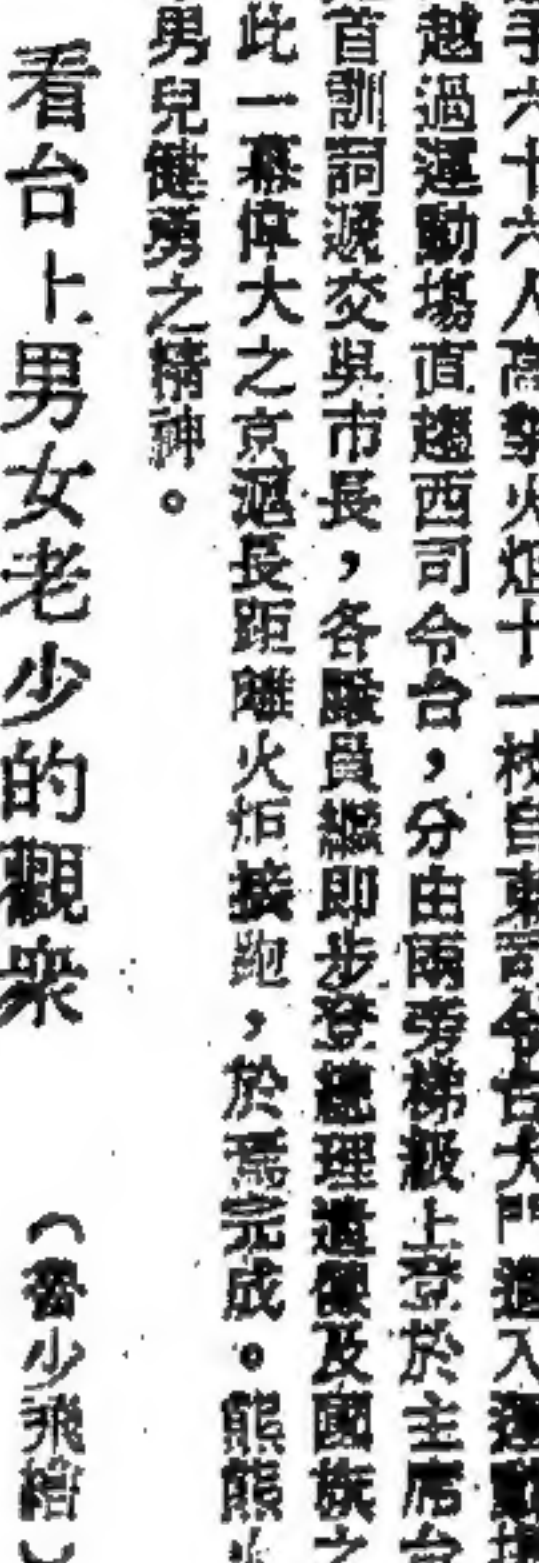 手六十六人高擎火炬十一枝自東司令台大門進入運動場
越過運動場直趨西司令台，分由兩旁梯級上登於主席台
首訓詞遞交吳市長，各隊員繼即步登總理遺像及國旗之
此一幕偉大之京滬長距離火炬接跑，於焉完成。熊熊火
男兒健勇之精神。
看台上男女老少的觀衆
（魯少飛繪）